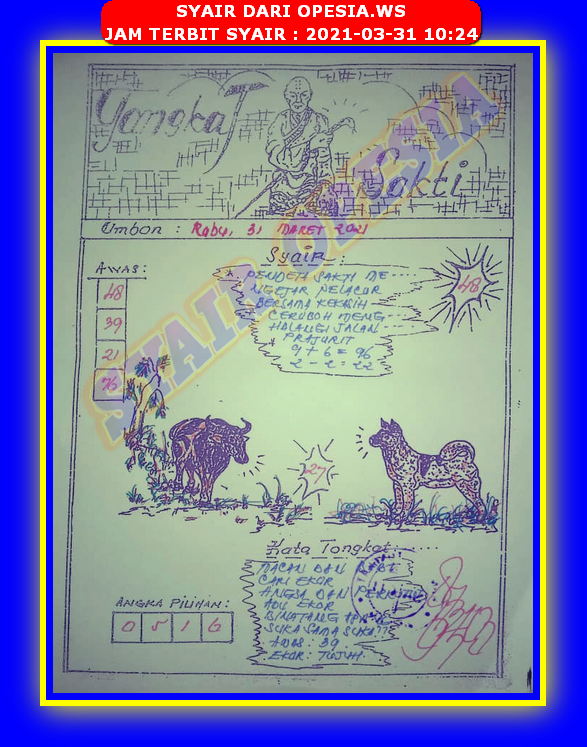 SYAIR DARI OPESIA.WS
JAM TERBIT SYAIR : 2021-03-31 10:24
Tongkat
Sakti
SYAIR OPESIA
Ombon : Rabu, 31 MARET 2021
AWAS:
48
39
21
96
Syair :
PENDETA SAKTI ME
NGEJAR PELACUR
BERSAMA KEKASIH
CEROBOH MENG
HALANGI JALAN
PRAJURIT
9 + 6 = 96
2 - 2 = 22
48
27
Kata Tongkat
MACAN DAN BABI
CARI EKOR
ANGSA DAN
ADU EKOR
BINATANG APA
SUKA SAMA SUKA??
AWAS : 39
EKOR : TUJUH
ANGKA PILIHAN:
0 5 1 6